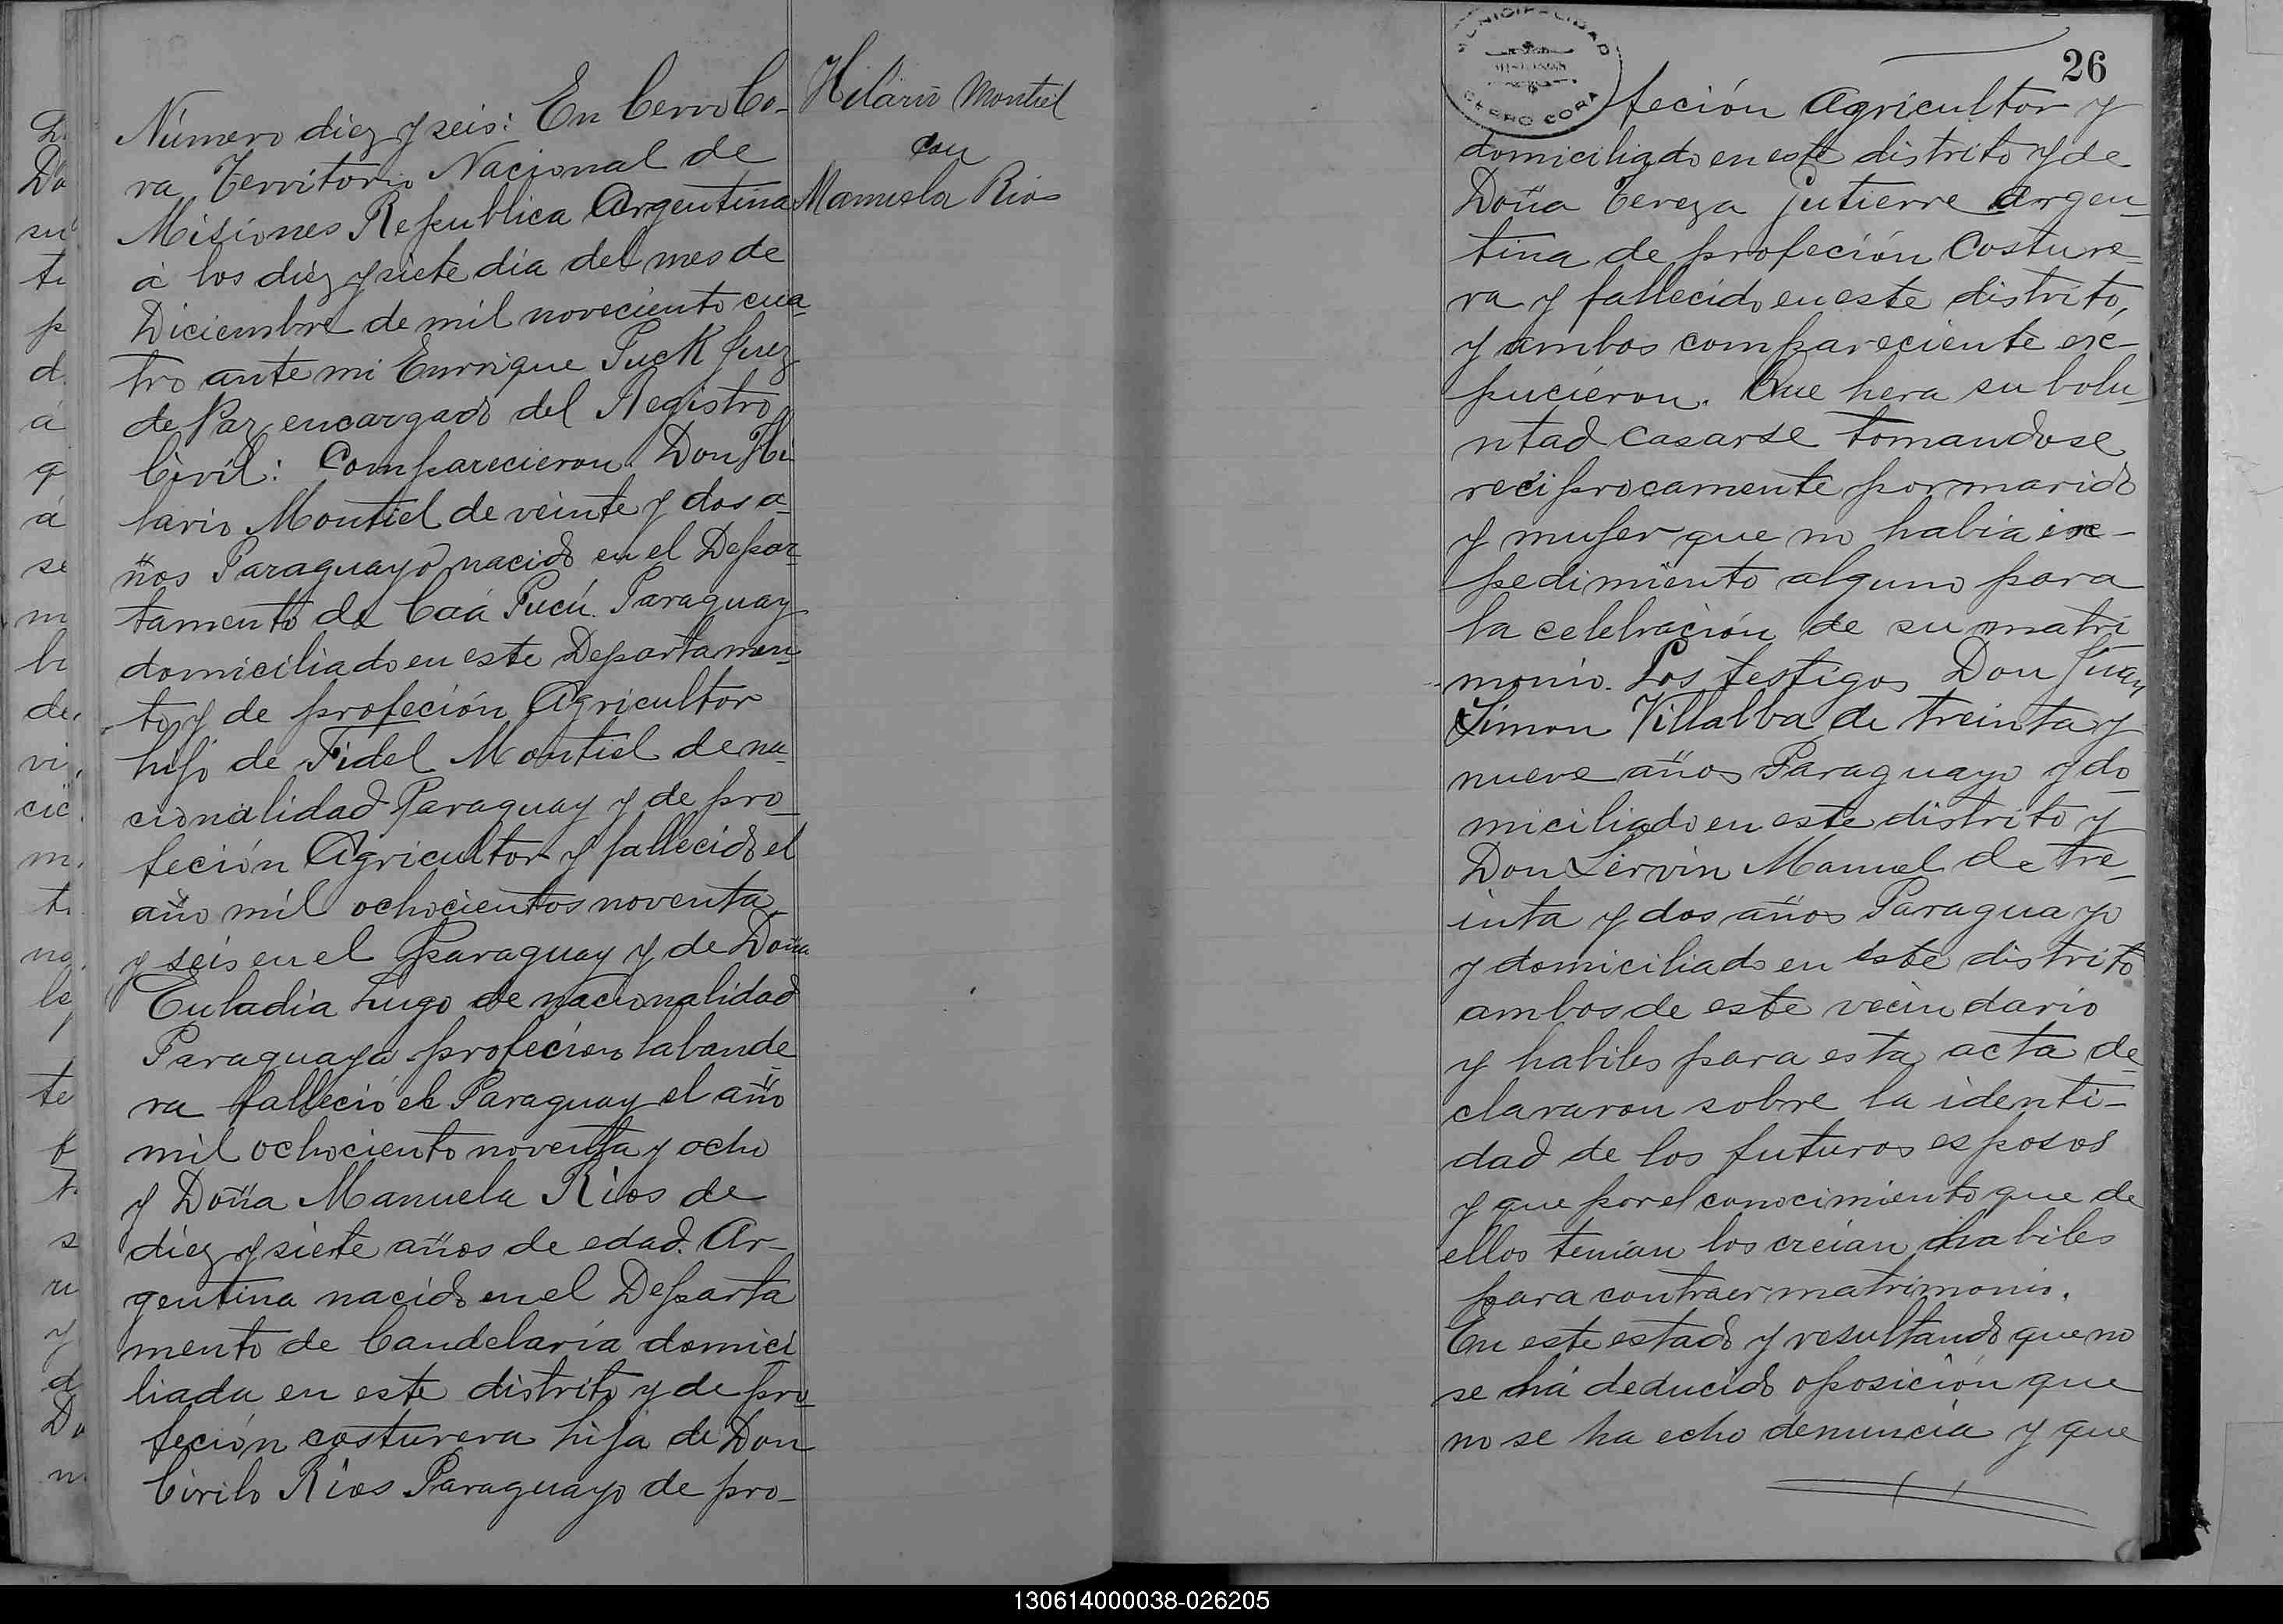 Número diez y seis: En Cerro Co-
ra Territorio Nacional de
Misiones Republica Argentina
á los diez y siete dia del mes de
Diciembre de mil noveciento cua-
tro ante mi Enrrique Puck Juez
de Paz encargado del Registro
Civil: Comparecieron Don Hi
lario Montiel de veinte y dos a-
ños Paraguayo nacido en el Depar-
tamento de Caá Pucú. Paraguay
domiciliado en este Departamen-
to y de profeción Agricultor
hijo de Fidel Montiel de na-
cionalidad Paraguay y de pro-
feción Agricultor y fallecido el
año mil ochocientos noventa
y seis en el Paraguay y de Doña
Euladia Lugo de nacionalidad
Paraguaya profecion labande-
ra fallecio el Paraguay el año
mil ochociento noventa y ocho
y Doña Manuela Rios de
diez y siete años de edad. Ar-
gentina nacido en el Departa
mento de Candelaria domici
liada en este distrito y de pro-
feción costurera hija de Don
Cirilo Rios Paraguayo de pro-
Hilario Montiel
con
Manuela Rios
MUNICIPALIDAD
MISIONES
CERRO CORA
26
feción Agricultor y
domiciliado en este distrito y de
Doña Tereza Gutierre Argen-
tina de profeción Costure-
ra y fallecido en este distrito,
y ambos compareciente exc-
pucieron. Que hera su bolu-
ntad casarse tomandose
reciprocamente por marido
y mujer que no habia
pedimiento alguno para
la celebración de su matri
monio. Los testigos Don Juan
Simon Villalba de treinta y
nueve años Paraguayo y do-
miciliado en este distrito y
Don Lervin Manuel de tre-
inta y dos años Paraguayo
y domiciliado en este distrito
ambos de este vecindario
y habiles para esta acta de-
clararon sobre la identi-
dad de los futuros esposos
y que por el conocimiento que de
ellos tenian los creian habiles
para contraer matrimonio.
En este estado y resultando que no
se há deducido oposicion que
no se ha echo denuncia y que
130614000038-026205